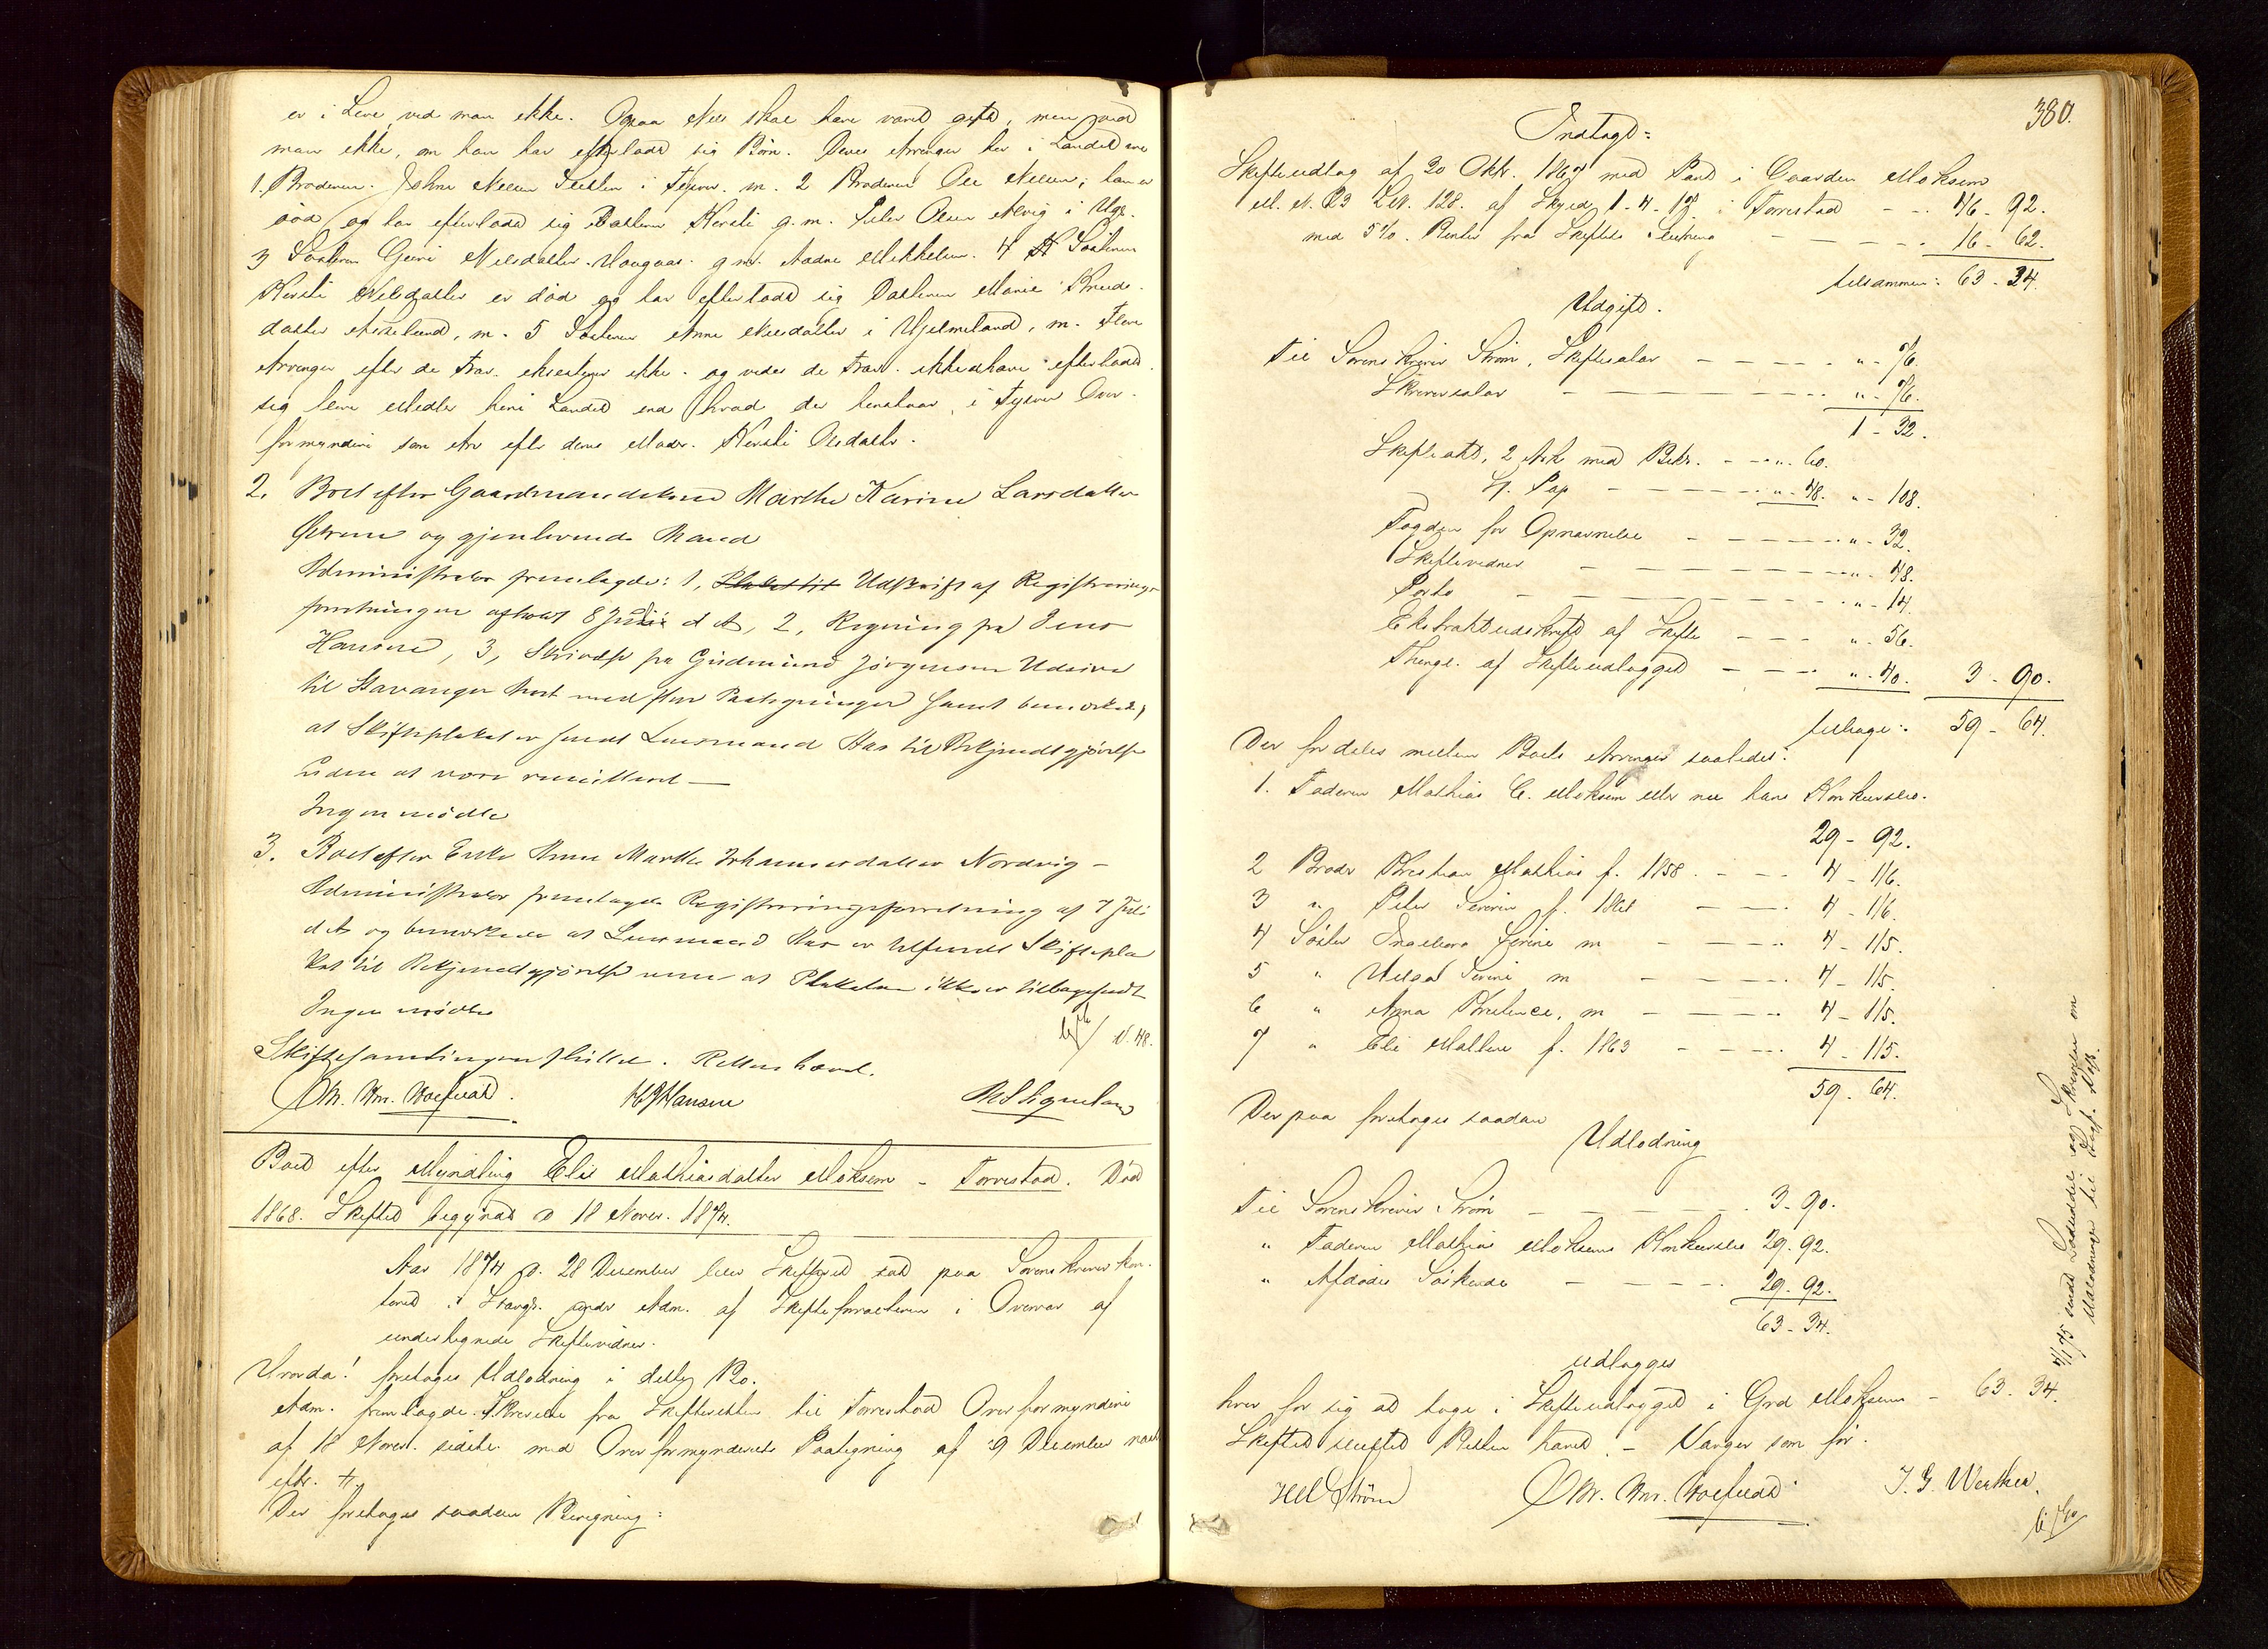 er i Live, ved man ikke. Ogsaa Nils skal have været gift, men ved
man ikke, om han har efterladt sig Børn. Deres Arvinger her i Landet ere
1. Broderen John Nilsen i Tysvær. m. 2 Broderen Ole Nilsen; han er
død og har efterladt sig Datteren Kersti g. m. Peder Olsen Alvig i
3 Søsteren Guri Nilsdatter g. m. Aadne Mikkelsen. 4 Søsteren
Kersti Nilsdatter er død og har efterladt sig Datteren Marie Knuds-
datter, m. 5 Søsteren Anne Nilsdatter i Hjelmeland, m. Flere
Arvinger efter de Frav. eksisterer ikke og vides de Frav. ikke at have efterladt
sig flere Midler her i Landet end hvad der henstaar i Tysvær Over-
formynderi som Arv efter deres Moder. Kersti Olsdatter.
2. Boet efter Gaardmandskone Marthe Karine Larsdatter
og gjenlevende Mand
Administrator fremlagde: 1, Udskrift af Registrerings-
forretningen afholdt 8 Juli d A, 2, Regning fra Jens
Hansen, 3, Skrivelse fra Gudmund Jørgensen
til Stavanger med Paategninger samt bemærkede,
at Skifteplakat er sendt Lensmand Aas til Bekjendtgjørelse
uden at være remitteret —
Ingen mødte
3. Boet efter Enke Anne Marthe Johannesdatter Nordvig -
Administrator fremlagde Registreringsforretning af 7 Juli
d A og bemærkede at Lensmand Aas er tilsendt Skiftepla
kat til Bekjendtgjørelse men at Plakaten ikke er tilbagesendt
Ingen mødte
Skiftesamlingen sluttet. Retten hævet.
HJHansen
Boet efter Myndling Elis Mathiasdatter Moksem - Torvestad. Død
1868. Skiftet begyndt d 18 Novbr. 1874.
Aar 1874 d. 28 December blev Skifteret sat paa Sorenskriverkon-
toret i Stavgr. under Adm. af Skifteforvalteren i Overvær af
undertegnede Skiftevidner.
Hvorda! foretages Udlodning i dette Bo.
Adm. fremlagde Skrivelse fra Skifteretten til Torvestad Overformynderi
af 18 Novbr. sidstl. med Overformynderiets Paategning af 9 December næst
eftr.
Der foretages saadan Beregning:
380.
Indtægt:
Skifteudlæg af 20 Oktr. 1867 med Pant i Gaarden Moksem
M. N. 23 L.N. 128. af Skyld 1-4-17 i Torvestad - - 46 - 92.
med 5%. Renter fra Skiftets Slutning - - - - 16 - 62.
tilsammen: 63 - 34.
Udgift.
Til Sorenskriver Strøm, Skiftesalær - - - - " - 76.
Skriversalær - - - - " - 76.
1 - 32.
Skifteakt, 2 Ark med Bekr. - - " - 60.
St. Pap - - - " - 48. " - 108.
Fogden for Opnævnelse - - - - " - 32.
Skiftevidner - - - - " - 48.
Porto - - - - " - 14.
Ekstraktudskrift af Skifte - - - " - 56.
Thingl. af Skifteudlægget - - - " - 40. 3 - 90.
tilbage: 59 - 64.
Der fordeles mellem Boets Arvinger saaledes:
1. Faderen Mathias C. Moksem eller nu hans Konkursbo.
29 - 92.
2 Broder Kristian Mathias f. 1858. - - 4 - 116.
3 " Peder Severin f. - - 4 - 116.
4 Søster Ingeborg Serine m - - 4 - 115.
5 " Helga Serine m - - 4 - 115.
6 " Anna, m - - 4 - 115.
7 " Eli Malene f. 1863 - - 4 - 115.
59 - 64.
Derpaa foretages saadan
Udlodning
Til Sorenskriver Strøm - - - 3 - 90.
" Faderen Mathias Moksems Konkursbo 29 - 92.
" Afdødes Søskende - - - 29 - 92.
63 - 34.
udlægges
hver for sig at tage i Skifteudlægget i Grd Moksem - 63 - 34.
Skiftet sluttet Retten hævet. - Varger som før.
Strøm J. G. Werther.
sendt Lodseddel og Skrivelse om
Udlodninger til